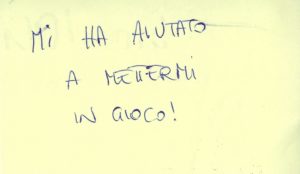 Mi HA AIUTATO
A METTERMI
IN GIOCO!